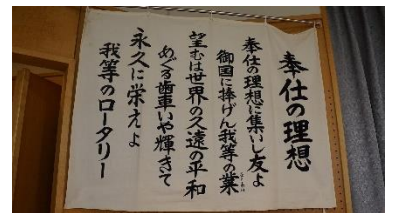 奉仕の理想
奉仕の理想に集いし友よ
御国に捧げん我等の業
望むは世界の久遠の平和
めぐる歯車いや輝きて
永久に栄えよ
我等のロータリー